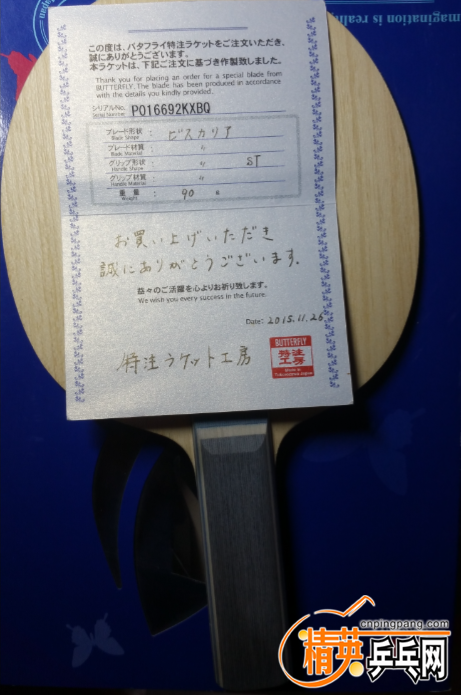 magination is real
この度は、バタフライ特注ラケットをご注文いただき、
誠にありがとうございます。
本ラケットは、下記ご注文に基づき作製致しました。
Thank you for placing an order for a special blade from
BUTTERFLY. The blade has been produced in accordance
with the details you kindly provided.
シリアルNo. P016692KXBQ
Serial Number
ブレード形状 : ビスカリア
Blade Shape
ブレード材質 : 〃
Blade Material
グリップ形状 : 〃 ST
Handle Shape
グリップ材質 : 〃
Handle Material
重量 : 90 g
Weight
お買い上げいただき
誠にありがとうございます。
益々のご活躍を心よりお祈り致します。
We wish you every success in the future.
Date: 2015.11.26
特注ラケット工房
BUTTERFLY
特注
工房
cnpingpang.com
精英乒乓网